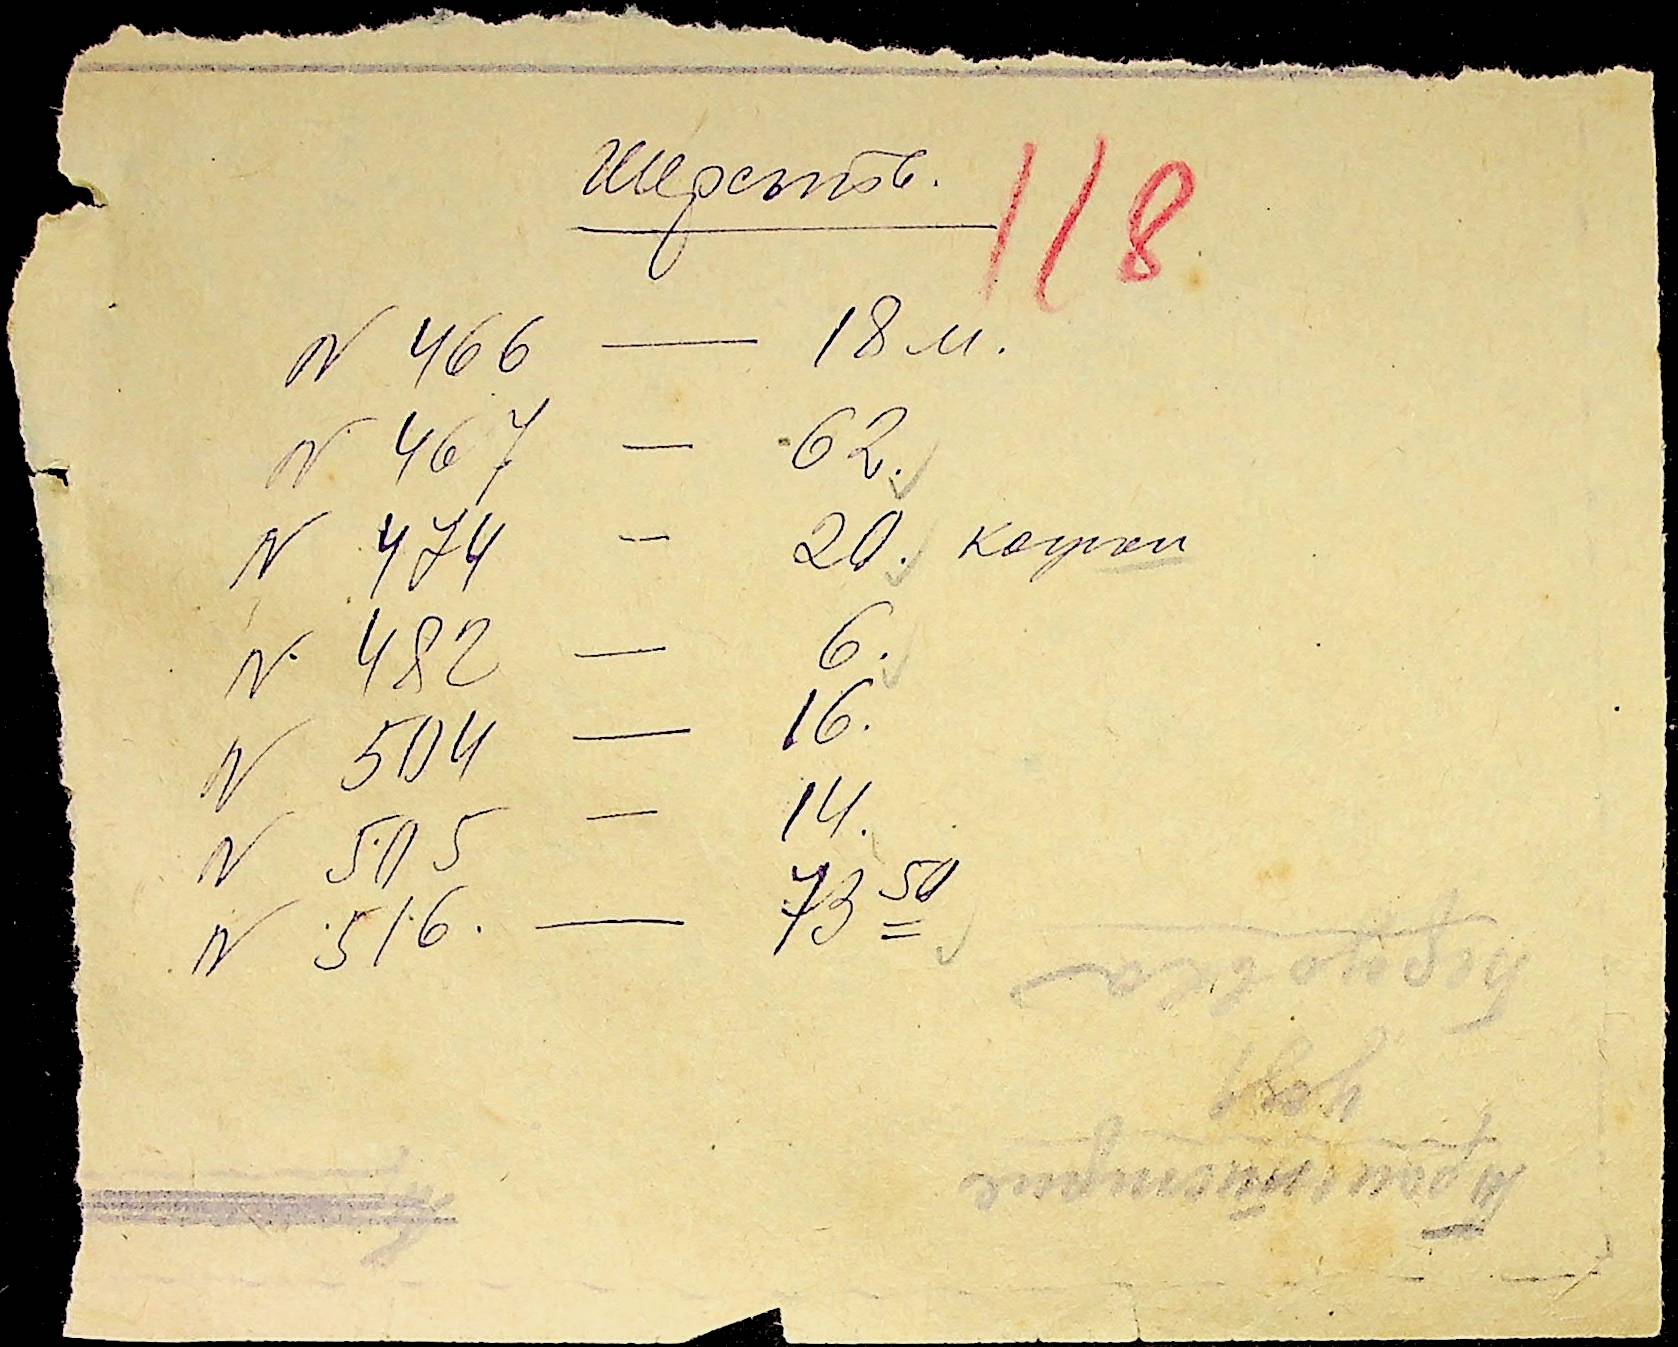 Шерсть. 118
N 466 — 18 м.
N 467 — 62.
N 474 — 20.
N 482 — 6.
N 504 — 16.
N 505 — 14.
N 516. — 73 50